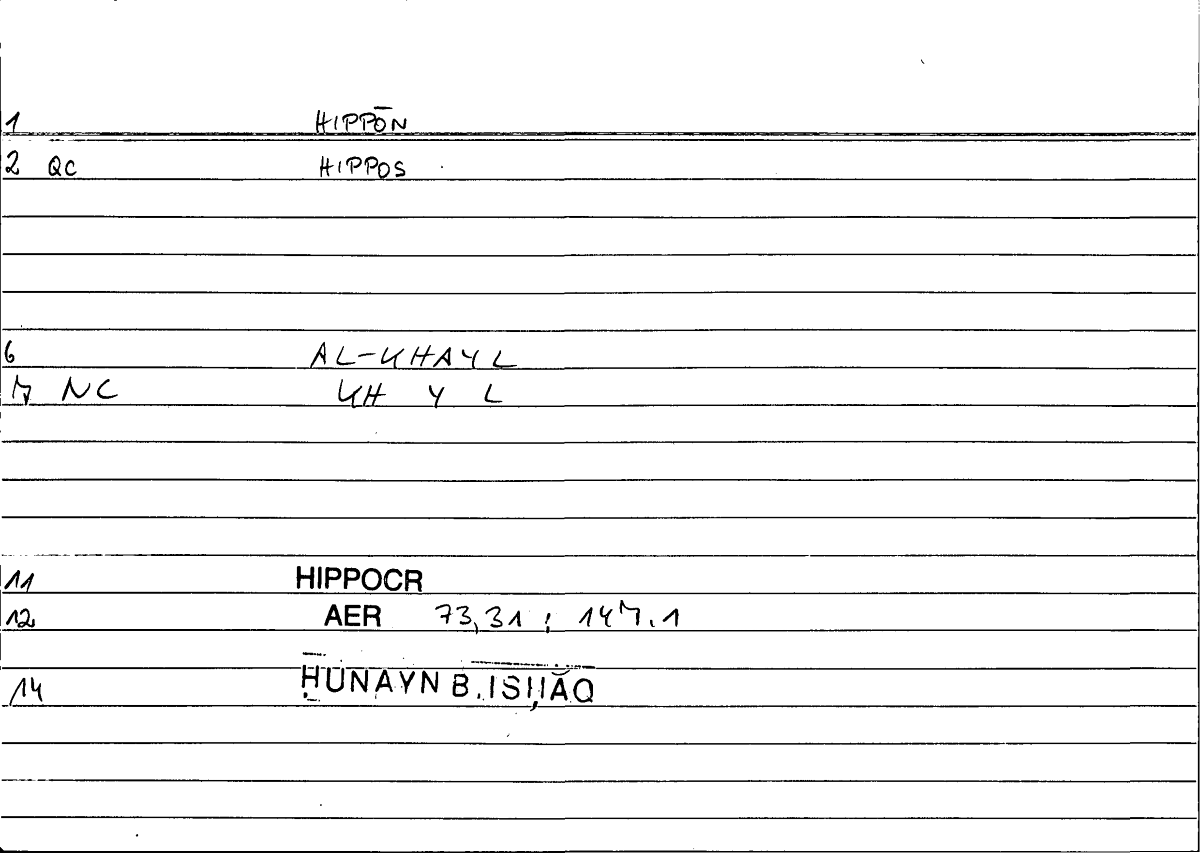 1 HIPPŌN
2 QC HIPPOS
6 AL-KHAYL
7 NC KH Y L
11 HIPPOCR
12 AER 73,31 ; 147.1
14 ḤUNAYN B. ISḤĀQ